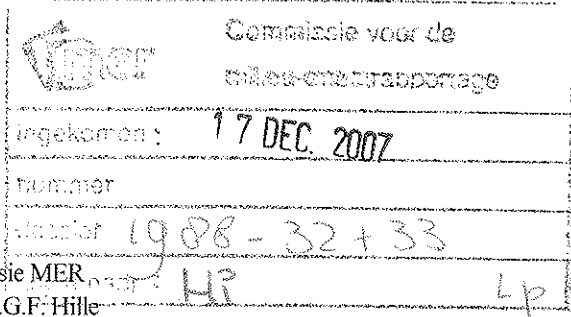 mer
Commissie voor de
milieu-effectrapportage
ingekomen : 17 DEC. 2007
nummer
dossier 1988 - 32 + 33
sie MER Hi Lp
.G.F. Hille